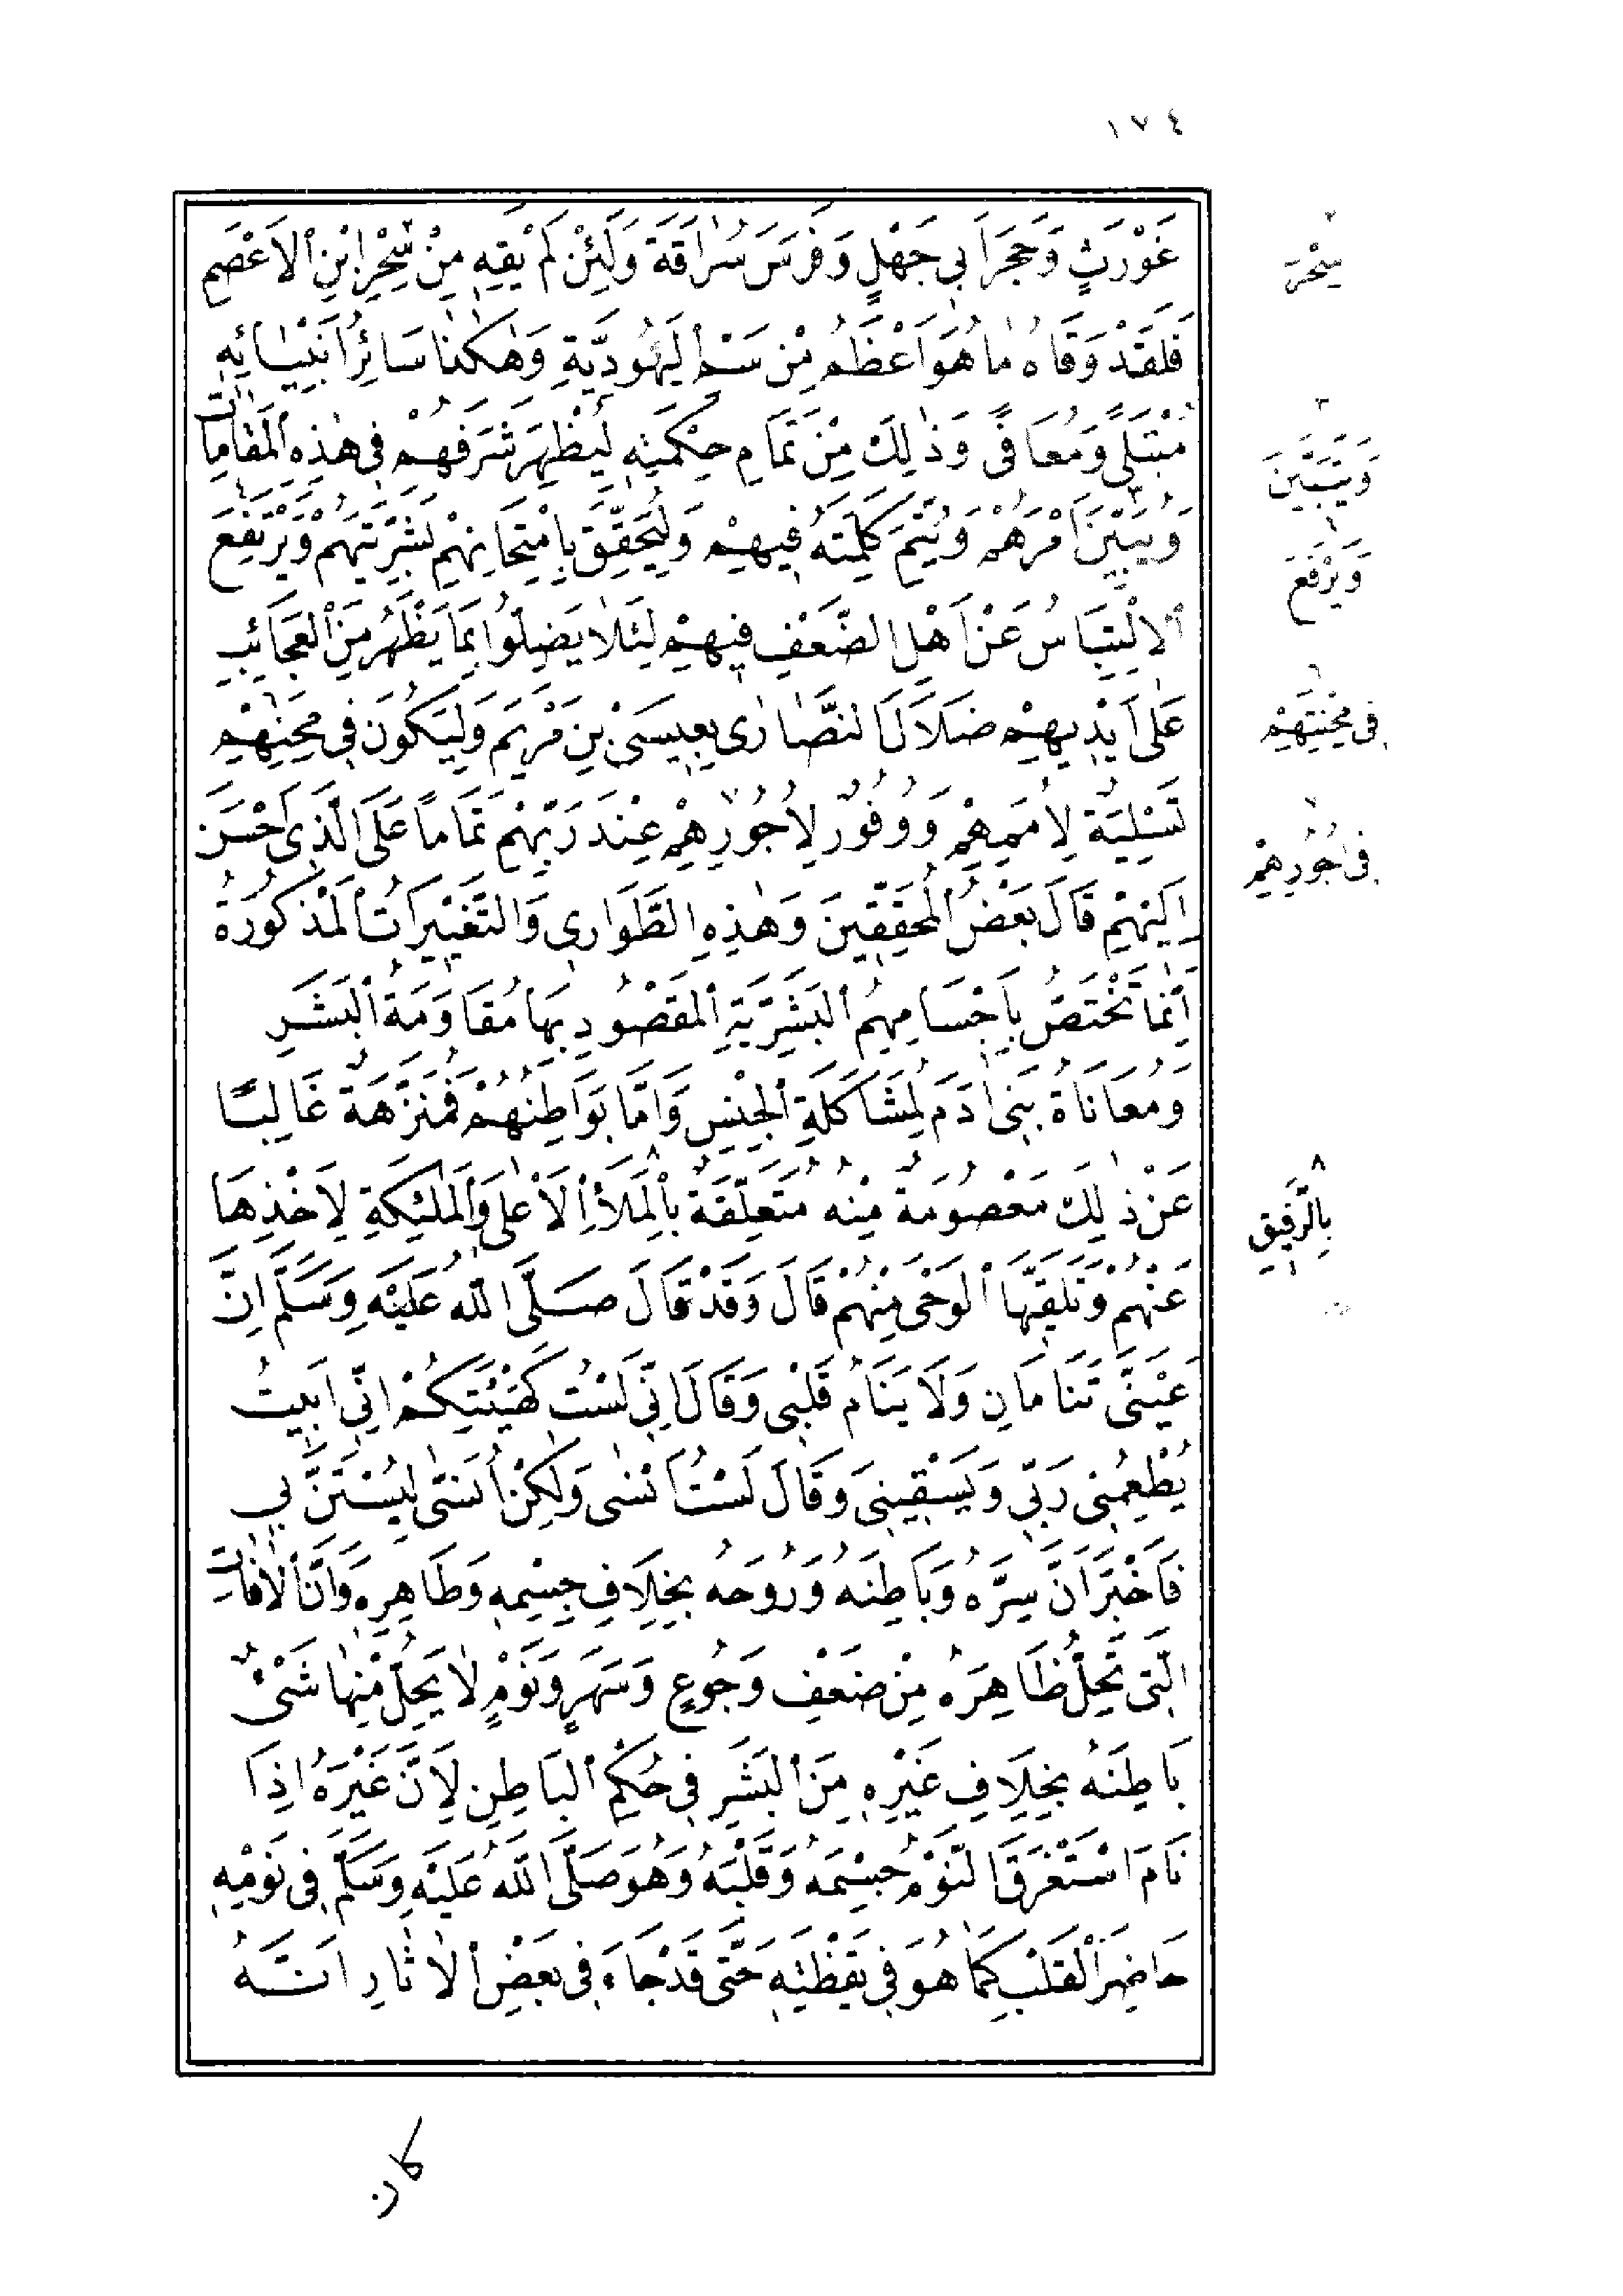 ١٧٤
غَوْرَثٍ وَحَجَرَ اَبِي جَهْلٍ وَفَرَسَ سُرَاقَةَ وَلَئِنْ لَمْ يَقِهِ مِنْ سِحْرِ ابْنِ الْاَعْصَمِ
فَلَقَدْ وَقَاهُ مَا هُوَ اَعْظَمُ مِنْ سَمِّ الْيَهُودِيَّةِ وَهٰكَذَا سَائِرُ اَنْبِيَائِهِ
مُبْتَلًى وَمُعَافًى وَذٰلِكَ مِنْ تَمَامِ حِكْمَتِهِ لِيُظْهِرَ شَرَفَهُمْ فِي هٰذِهِ الْمَقَامَاتِ
وَيُبَيِّنَ اَمْرَهُمْ وَيُتِمَّ كَلِمَتَهُ فِيهِمْ وَلِيُحَقِّقَ بِامْتِحَانِهِمْ بَشَرِيَّتَهُمْ وَيَرْتَفِعَ
الْاِلْتِبَاسُ عَنْ اَهْلِ الضَّعْفِ فِيهِمْ لِئَلَّا يَضِلُّوا بِمَا يَظْهَرُ مِنَ الْعَجَائِبِ
عَلٰى اَيْدِيهِمْ ضَلَالَ النَّصَارٰى بِعِيسَى بْنِ مَرْيَمَ وَلِيَكُونَ فِي مِحَنِهِمْ
تَسْلِيَةٌ لِاُمَمِهِمْ وَوُفُورٌ لِاُجُورِهِمْ عِنْدَ رَبِّهِمْ تَمَامًا عَلَى الَّذِي اَحْسَنَ
اِلَيْهِمْ قَالَ بَعْضُ الْمُحَقِّقِينَ وَهٰذِهِ الطَّوَارِي وَالتَّغْيِيرَاتُ الْمَذْكُورَةُ
اِنَّمَا تَخْتَصُّ بِاَجْسَامِهِمُ الْبَشَرِيَّةِ الْمَقْصُودِ بِهَا مُقَاوَمَةُ الْبَشَرِ
وَمُعَانَاةُ بَنِي اٰدَمَ لِمُشَاكَلَةِ الْجِنْسِ وَاَمَّا بَوَاطِنُهُمْ فَمُنَزَّهَةٌ غَالِبًا
عَنْ ذٰلِكَ مَعْصُومَةٌ مِنْهُ مُتَعَلِّقَةٌ بِالْمَلَأِ الْاَعْلٰى وَالْمَلٰئِكَةِ لِاَخْذِهَا
عَنْهُمْ وَتَلَقِّيهَا الْوَحْيَ مِنْهُمْ قَالَ وَقَدْ قَالَ صَلَّى اللّٰهُ عَلَيْهِ وَسَلَّمَ اِنَّ
عَيْنَيَّ تَنَامَانِ وَلَا يَنَامُ قَلْبِي وَقَالَ اِنِّي لَسْتُ كَهَيْئَتِكُمْ اِنِّي اَبِيتُ
يُطْعِمُنِي رَبِّي وَيَسْقِينِي وَقَالَ لَسْتُ اَنْسٰى وَلٰكِنْ اُنَسّٰى لِيُسْتَنَّ بِي
فَاَخْبَرَ اَنَّ سِرَّهُ وَبَاطِنَهُ وَرُوحَهُ بِخِلَافِ جِسْمِهِ وَظَاهِرِهِ وَاَنَّ الْاٰفَاتِ
الَّتِي تَحِلُّ ظَاهِرَهُ مِنْ ضَعْفٍ وَجُوعٍ وَسَهَرٍ وَنَوْمٍ لَا يَحِلُّ مِنْهَا شَيْءٌ
بَاطِنَهُ بِخِلَافِ غَيْرِهِ مِنَ الْبَشَرِ فِي حُكْمِ الْبَاطِنِ لِاَنَّ غَيْرَهُ اِذَا
نَامَ اسْتَغْرَقَ النَّوْمُ جِسْمَهُ وَقَلْبَهُ وَهُوَ صَلَّى اللّٰهُ عَلَيْهِ وَسَلَّمَ فِي نَوْمِهِ
حَاضِرُ الْقَلْبِ كَمَا هُوَ فِي يَقْظَتِهِ حَتّٰى قَدْ جَاءَ فِي بَعْضِ الْاٰثَارِ اَنَّهُ
٢
سِحْرَ
٣
وَيَتَبَيَّنَ
وَيَرْفَعَ
٦
فِي مِحْنَتِهِمْ
٧
فِي اُجُورِهِمْ
٨
بِالرَّفِيقِ
كان